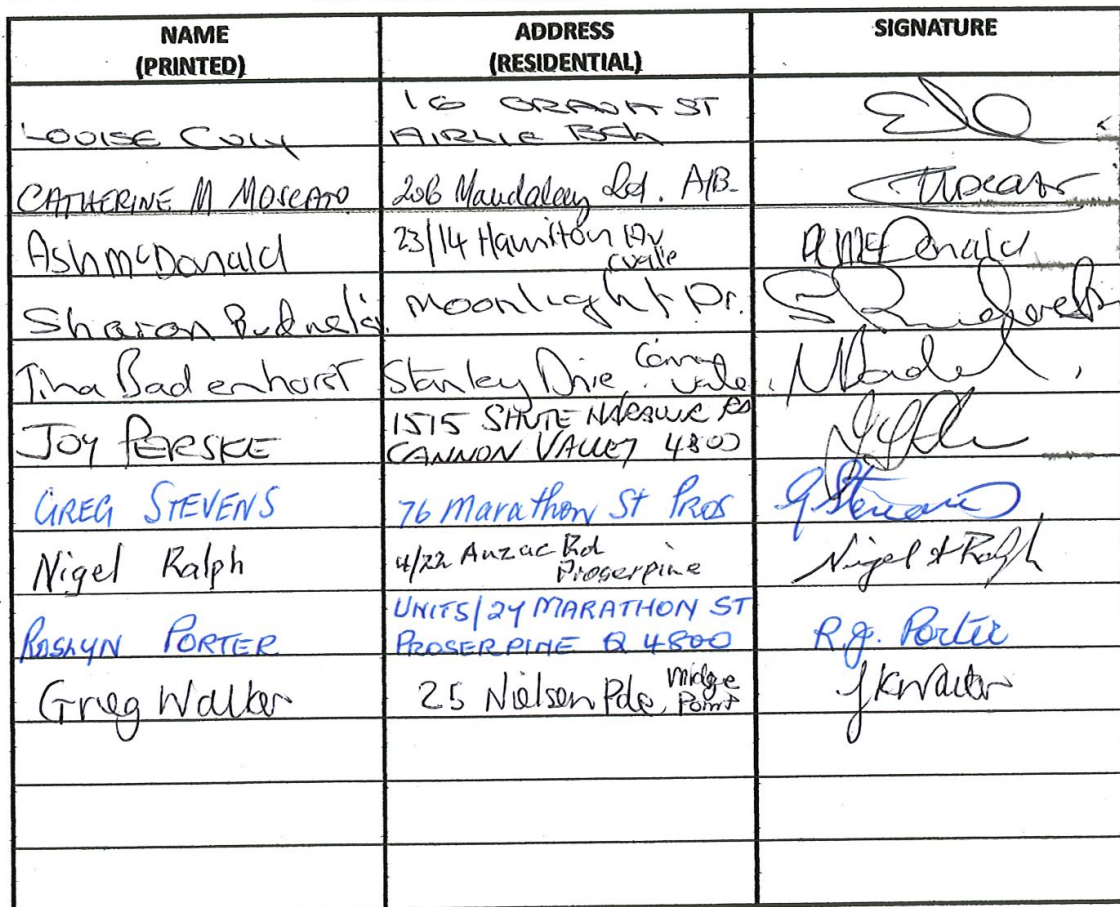 NAME
(PRINTED)
ADDRESS
(RESIDENTIAL)
SIGNATURE
LOUISE
16 ST
AIRLIE BCH
CATHERINE M MOSCATO 20B Mandalay Rd. A/B.
Ash McDonald 23/14 Hamilton Av
C/Valle
A McDonald
Sharon Moonlight Dr.
Tina Badenhorst Stanley Drie Cannon
vale
JOY PERSKE
1515 SHUTE HARBOUR RD
CANNON VALLEY 4800
GREG STEVENS 76 Marathon St PROS G Stevens
Nigel Ralph 4/22 Anzac Rd
Proserpine
Nigel A Ralph
ROSLYN PORTER
UNIT5/24 MARATHON ST
PROSERPINE Q 4800
R.J. Porter
Greg Walker 25 Nielsen Pde, Midge
Point